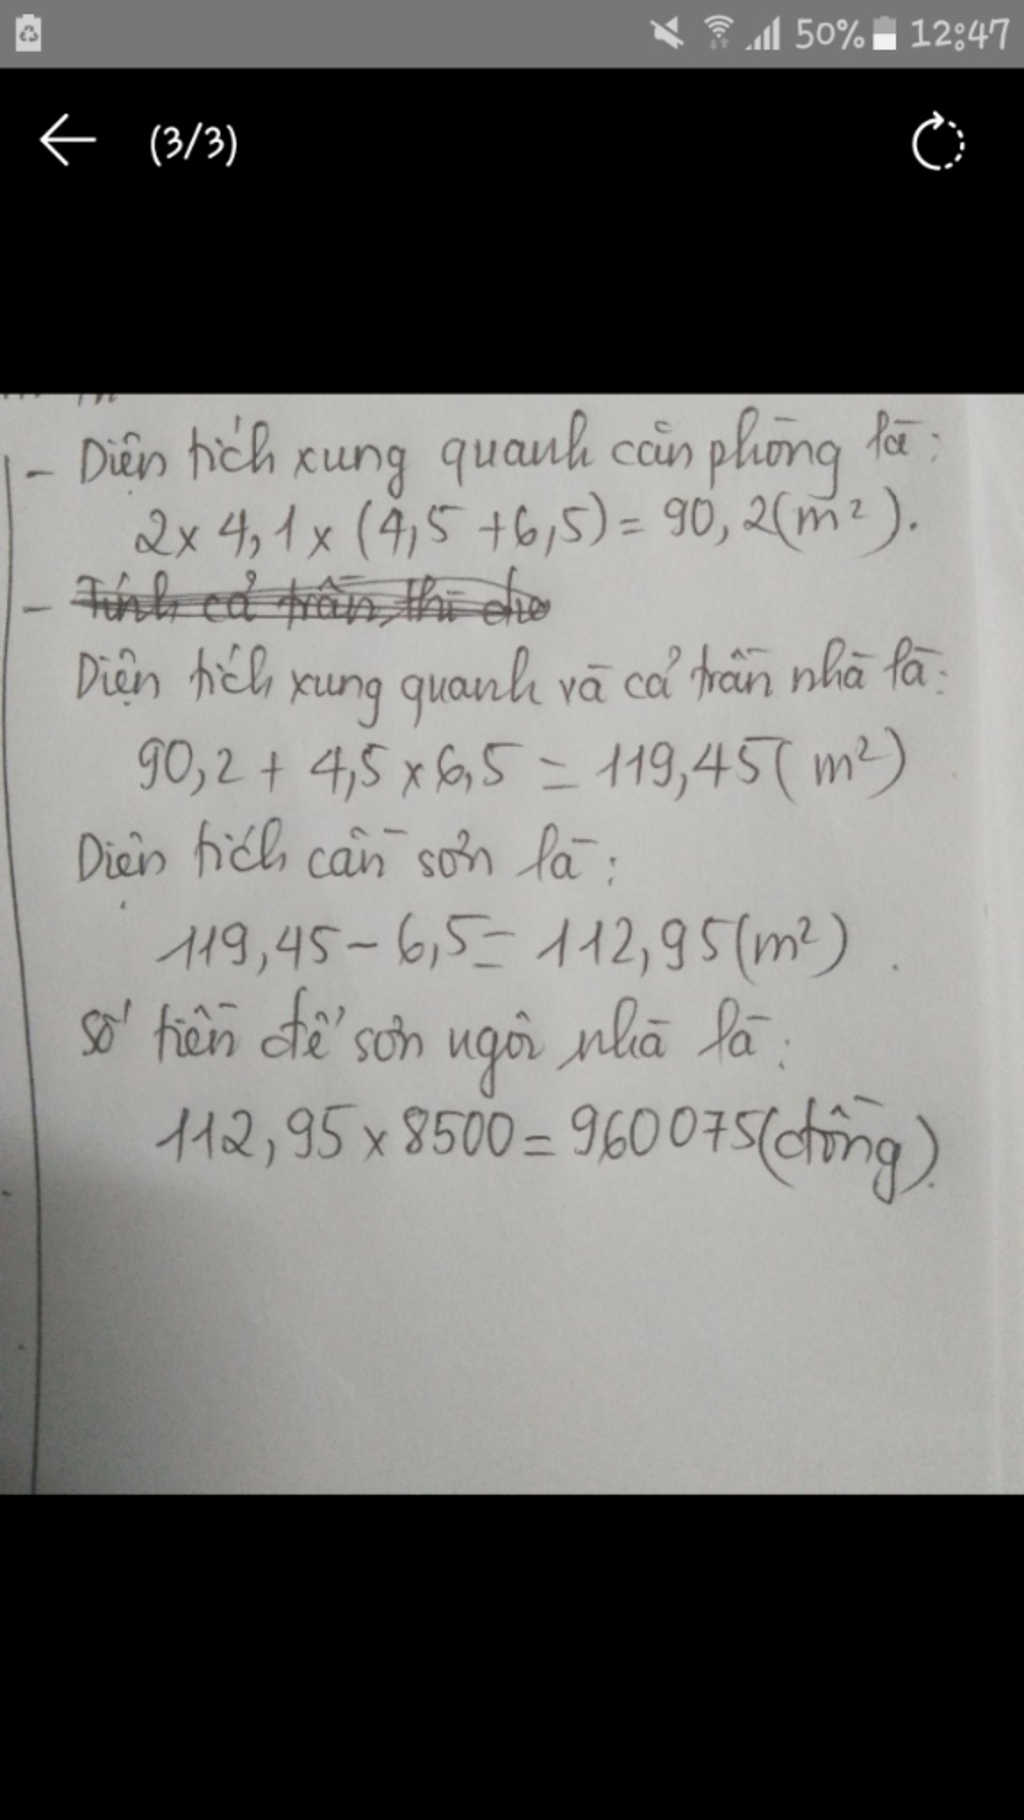 50% 12:47
(3/3)
- Diện tích xung quanh căn phòng là:
2 x 4,1 x (4,5 + 6,5) = 90,2 (m²).
- Tính cả trần, thì cho
Diện tích xung quanh và cả trần nhà là:
90,2 + 4,5 x 6,5 = 119,45 (m²)
Diện tích cần sơn là:
119,45 - 6,5 = 112,95 (m²).
Số tiền để sơn ngôi nhà là:
112,95 x 8500 = 960075 (đồng).